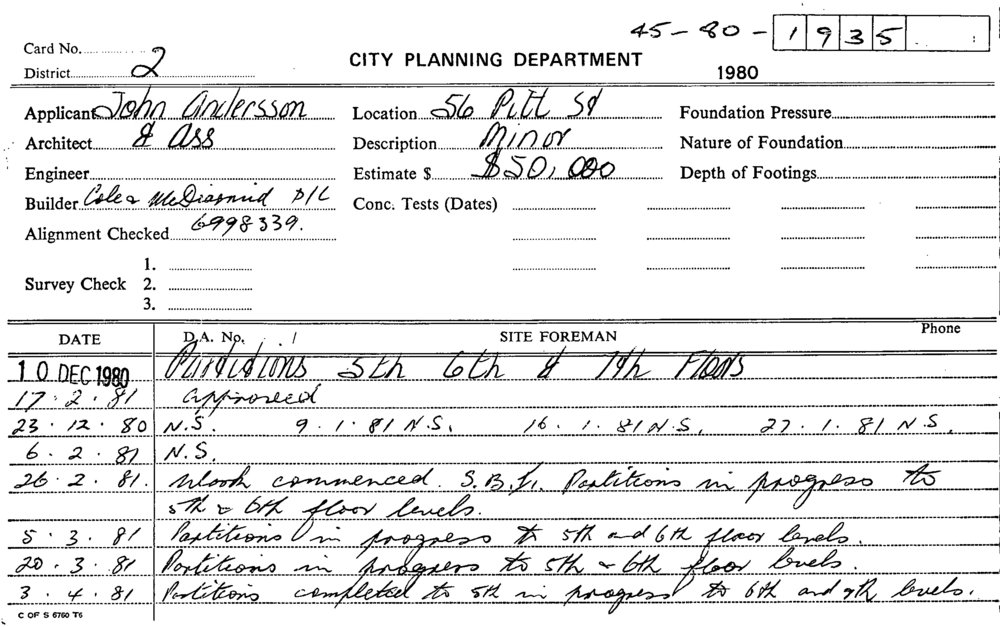 45-80-1935 :
Card No. 2
District
CITY PLANNING DEPARTMENT
1980
Applicant John Andersson Location 56 Pitt St Foundation Pressure
Architect & Ass Description Minor Nature of Foundation
Engineer Estimate $ $50,000 Depth of Footings
Builder Cole & McDiarmid P/L Conc. Tests (Dates)
Alignment Checked 6998339.
1.
Survey Check 2.
3.
DATE D.A. No. SITE FOREMAN Phone
10 DEC 1980 Partitions 5th 6th & Floors
17.2.81 approved
23.12.80 N.S. 9.1.81 N.S. 16.1.81 N.S. 27.1.81 N.S.
6.2.81 N.S.
26.2.81. Work commenced. Partitions in progress to
5th & 6th floor levels.
5.3.81 Partitions in progress to 5th and 6th floor levels.
20.3.81 Partitions in progress to 5th & 6th floor levels.
3.4.81 Partitions completed to 5th in progress to 6th and levels.
C OF S 6760 T6